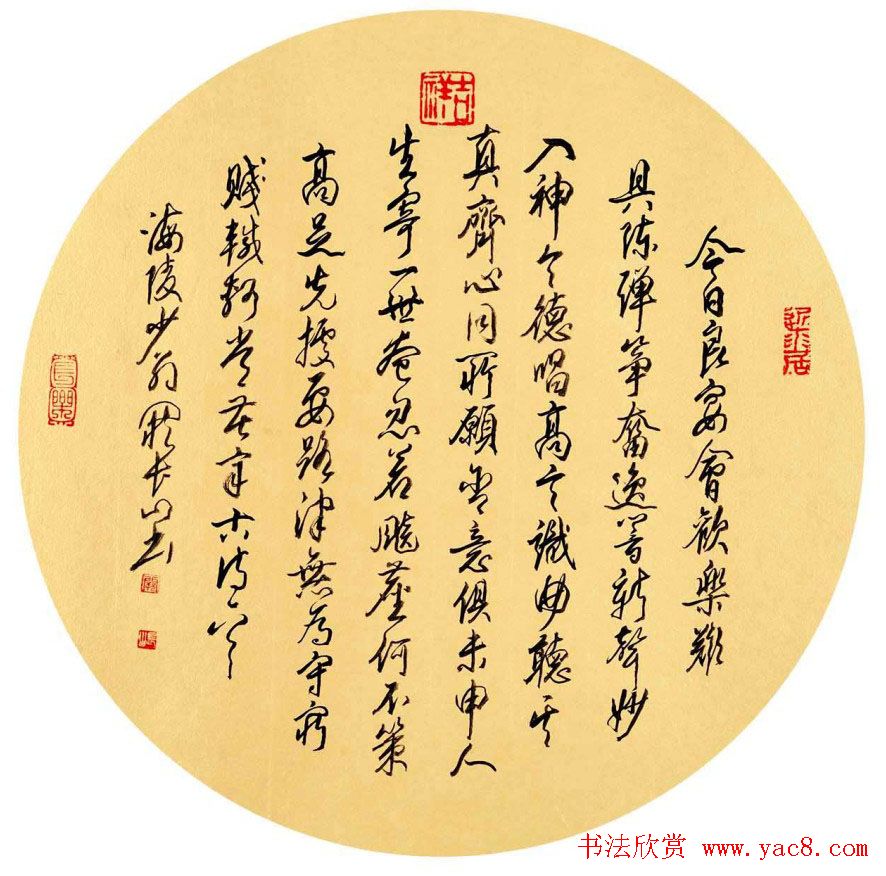 今日良宴會歡樂難
具陳彈箏奮逸響新聲妙
入神令德唱高言識曲聽其
真齊心同所願含意俱未申人
生寄一世奄忽若飆塵何不策
高足先據要路津無為守窮
賤轗軻常苦辛古詩
海陵少翁長山書
吉祥
书法欣赏 www.yac8.com